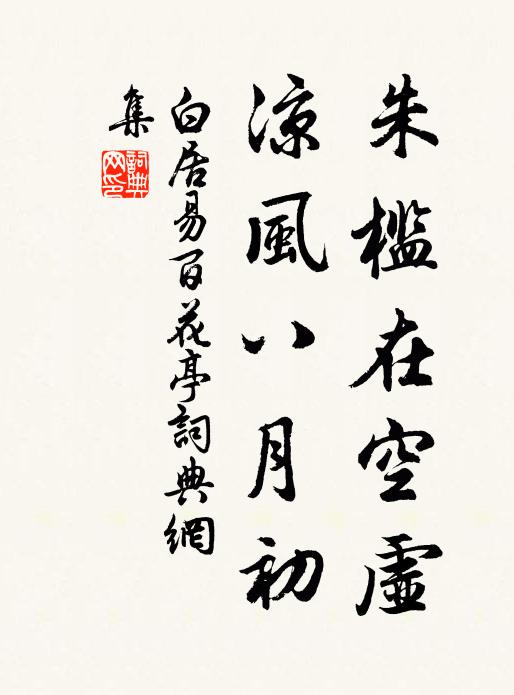 朱檻在空虛
涼風八月初
白居易百花亭詞典網
集
詞典
网印